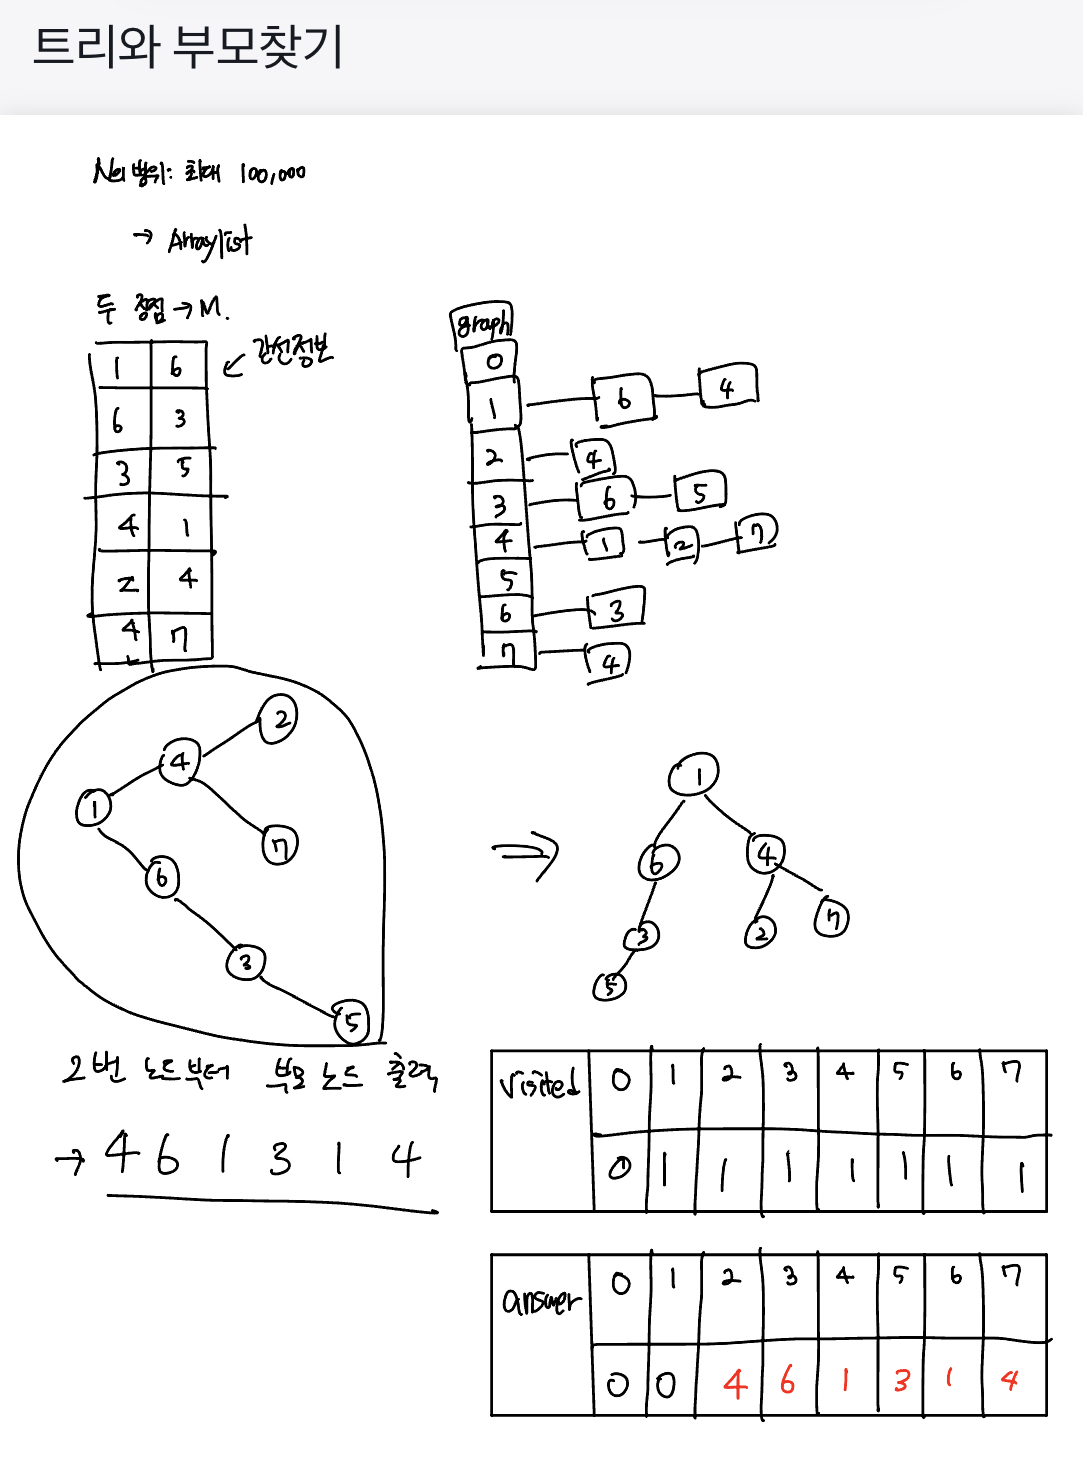 트리와 부모찾기
N의 범위: 최대 100,000
→ Arraylist
두 정점 → M.
간선정보
1 6
6 3
3 5
4 1
2 4
4 7
graph
0
1 6 4
2 4
3 6 5
4 1 2 7
5
6 3
7 4
2
4
1
7
6
3
5
⇒
1
6 4
3 2 7
5
2번 노드부터 부모 노드 출력
→ 4 6 1 3 1 4
Visited 0 1 2 3 4 5 6 7
0 1 1 1 1 1 1 1
answer 0 1 2 3 4 5 6 7
0 0 4 6 1 3 1 4